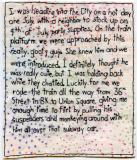 I was heading into the city on a hot day one
July with a neighbor to stock up on
4th of July party supplies. On the train
platform we were approached by this
really goofy guy. She knew him and we
were introduced. I definitely thought he
was really cute, but I was holding back
while they chatted. Luckily for me we
rode the train all the way from 36th
Street in BK to Union Square, giving me
enough time to flirt by pulling his
suspenders and monkeying around with
him all over that subway car.